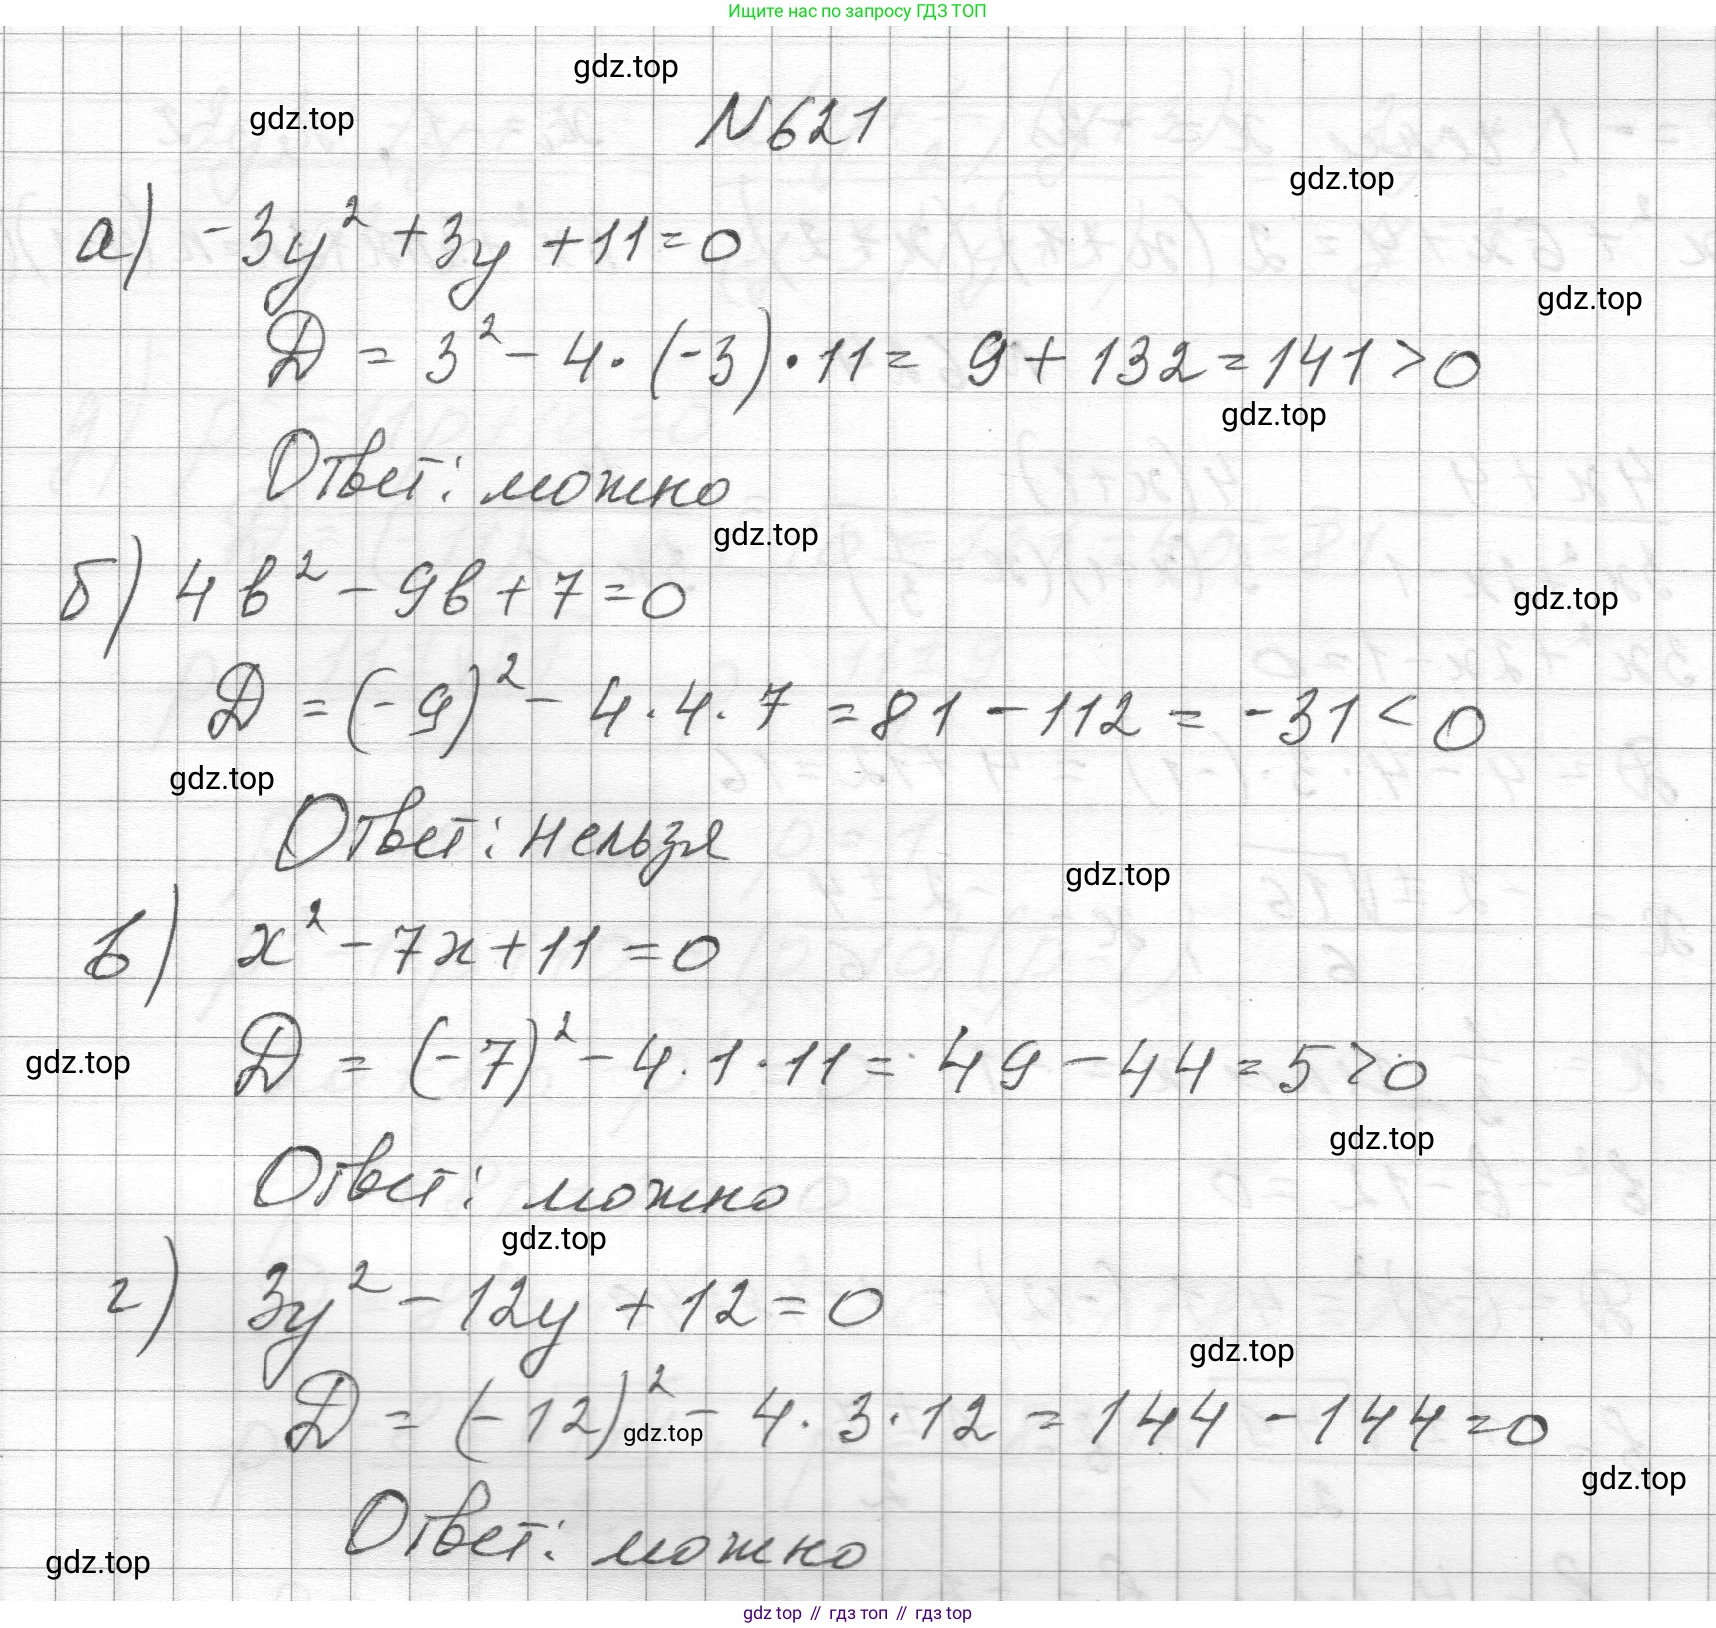 Ищите нас по запросу ГДЗ ТОП
gdz.top
gdz.top
N621
gdz.top
а) -3y² + 3y + 11 = 0
gdz.top
D = 3² - 4 · (-3) · 11 = 9 + 132 = 141 > 0
gdz.top
Ответ: можно
gdz.top
б) 4b² - 9b + 7 = 0
gdz.top
D = (-9)² - 4 · 4 · 7 = 81 - 112 = -31 < 0
gdz.top
Ответ: нельзя
gdz.top
в) x² - 7x + 11 = 0
D = (-7)² - 4 · 1 · 11 = 49 - 44 = 5 > 0
gdz.top
gdz.top
Ответ: можно
gdz.top
г) 3y² - 12y + 12 = 0
gdz.top
D = (-12)² - 4 · 3 · 12 = 144 - 144 = 0
gdz.top
gdz.top
Ответ: можно
gdz.top
gdz top // гдз топ // gdz top